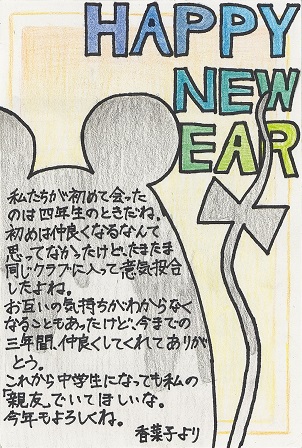 HAPPY
NEW
YEAR
私たちが初めて会った
のは四年生のときだね。
初めは仲良くなるなんて
思ってなかったけど、たまたま
同じクラブに入って意気投合
したよね。
お互いの気持ちがわからなく
なることもあったけど、今までの
三年間、仲良くしてくれてありが
とう。
これから中学生になっても私の
「親友」でいてほしいな。
今年もよろしくね。
香葉子より